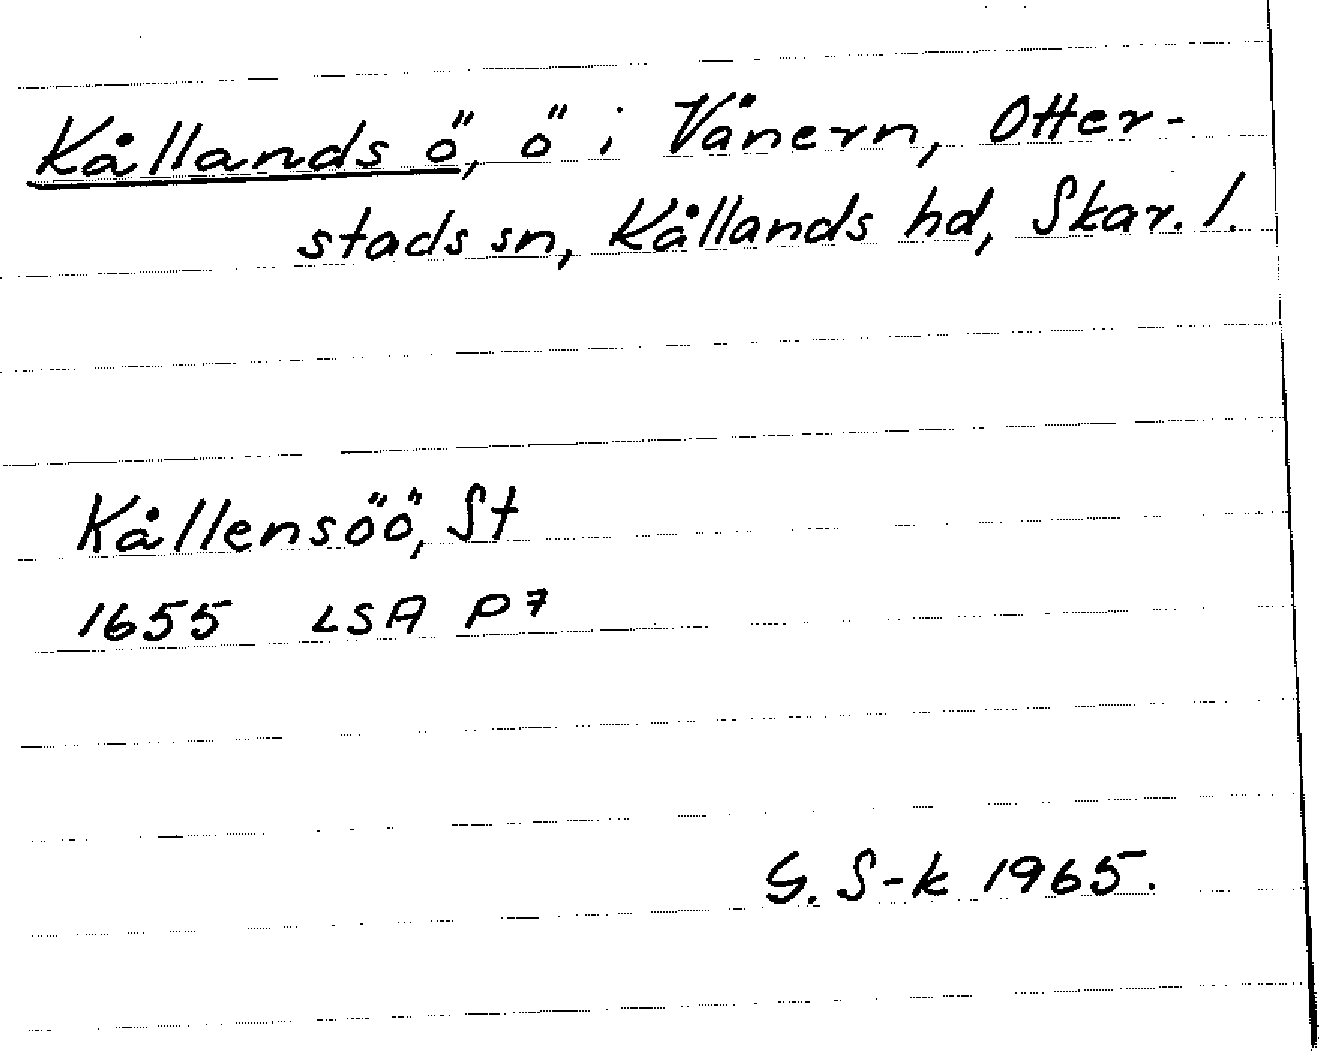 Kållands ö, ö i Vänern, Otter-
stads sn, Kållands hd, Skar. l.
Kållensöö, St
1655 LSA P7
G. S-k 1965.